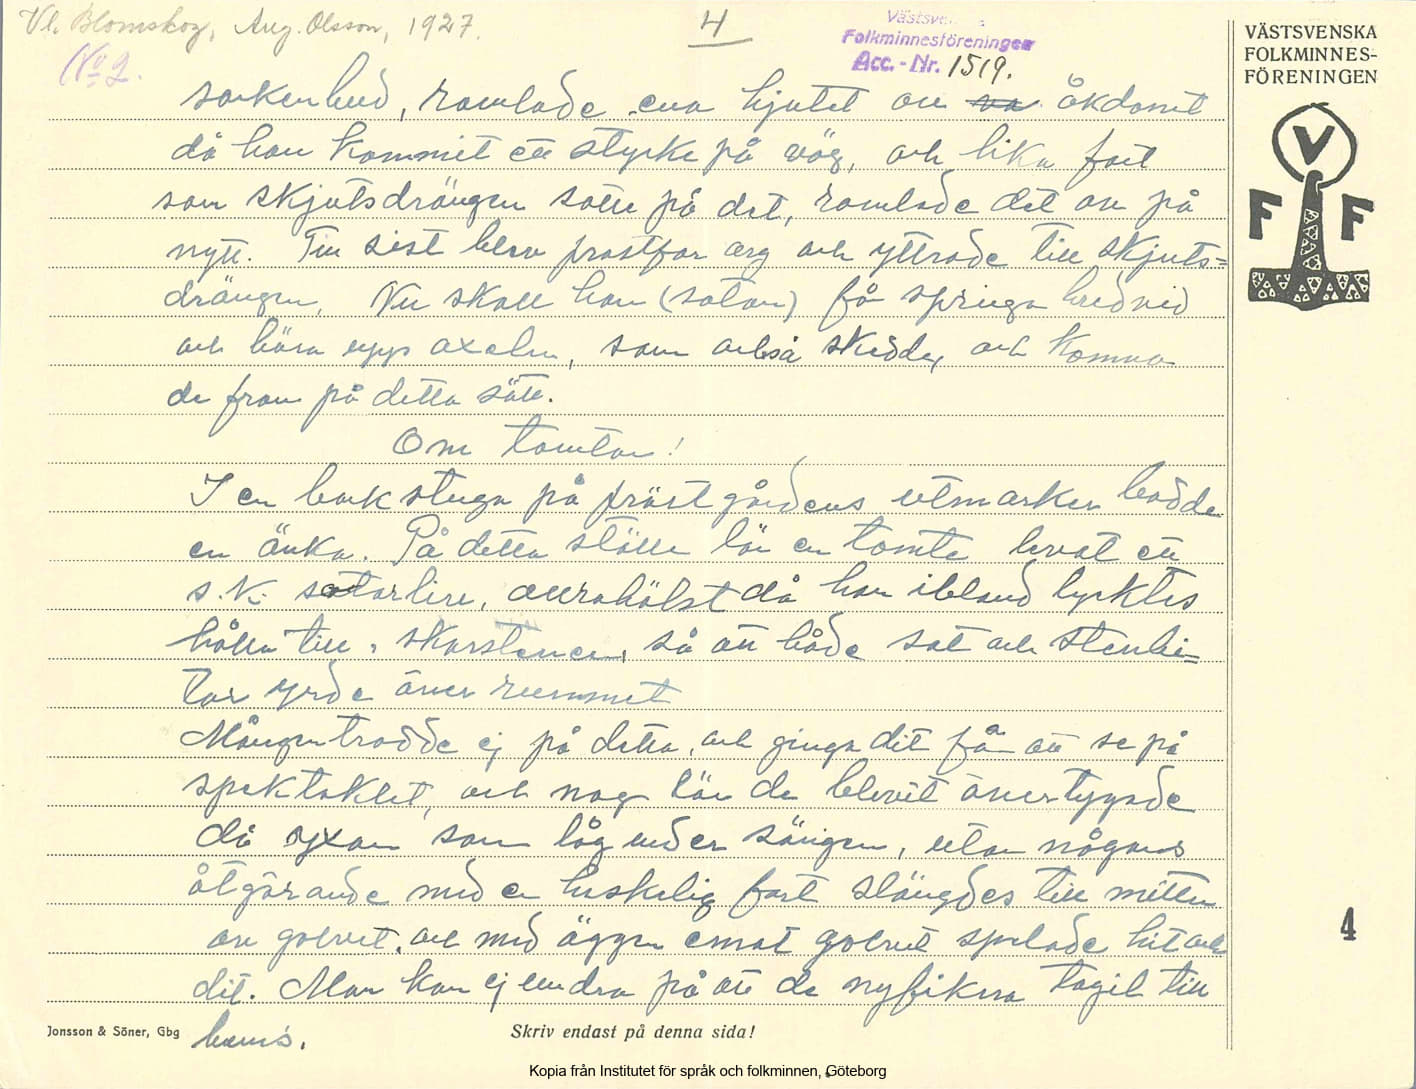 Vl. Blomskog, Aug. Olsson, 1927.
4
Västsvenska
Folkminnesföreningen
Acc.-Nr. 1519.
No 2.
VÄSTSVENSKA
FOLKMINNES-
FÖRENINGEN
V
F F
sockenbud, ramlade ena hjulet av va åkdonet
då han kommit ett stycke på väg, och lika fort
som skjutsdrängen satte på det, ramlade det av på
nytt. Till sist blev prostfar arg och yttrade till skjuts=
drängen, Nu skall han (satan) få springa bredvid
och bära upp axeln, som också skedde, och komma
de fram på detta sätt.
Om tomtar!
I en backstuga på prästgårdens utmarker bodde
en änka. På detta ställe lär en tomte levat ett
s.k. satarliv, allrahälst då han ibland lycktes
hålla till i skorstenen, så att både sot och stenbi=
tar yrde över rummet
Mången trodde ej på detta, och gingo dit för att se på
spektaklet, och nog lär de blevit övertygade
då yxan som låg under sängen, utan någons
åtgörande med en huskelig fart slängdes till mitten
av golvet, och med äggen emot golvet spelade hit och
dit. Man kan ej undra på att de nyfikna tagit till
bens.
4
Jonsson & Söner, Gbg
Skriv endast på denna sida!
Kopia från Institutet för språk och folkminnen, Göteborg